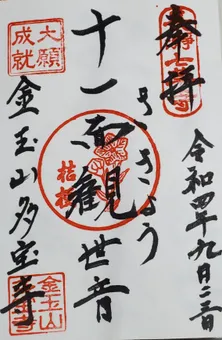 奉拝
令和四年九月二日
ききょう
十一面観世音
桔梗
大願
成就
金玉山多宝寺
金玉山